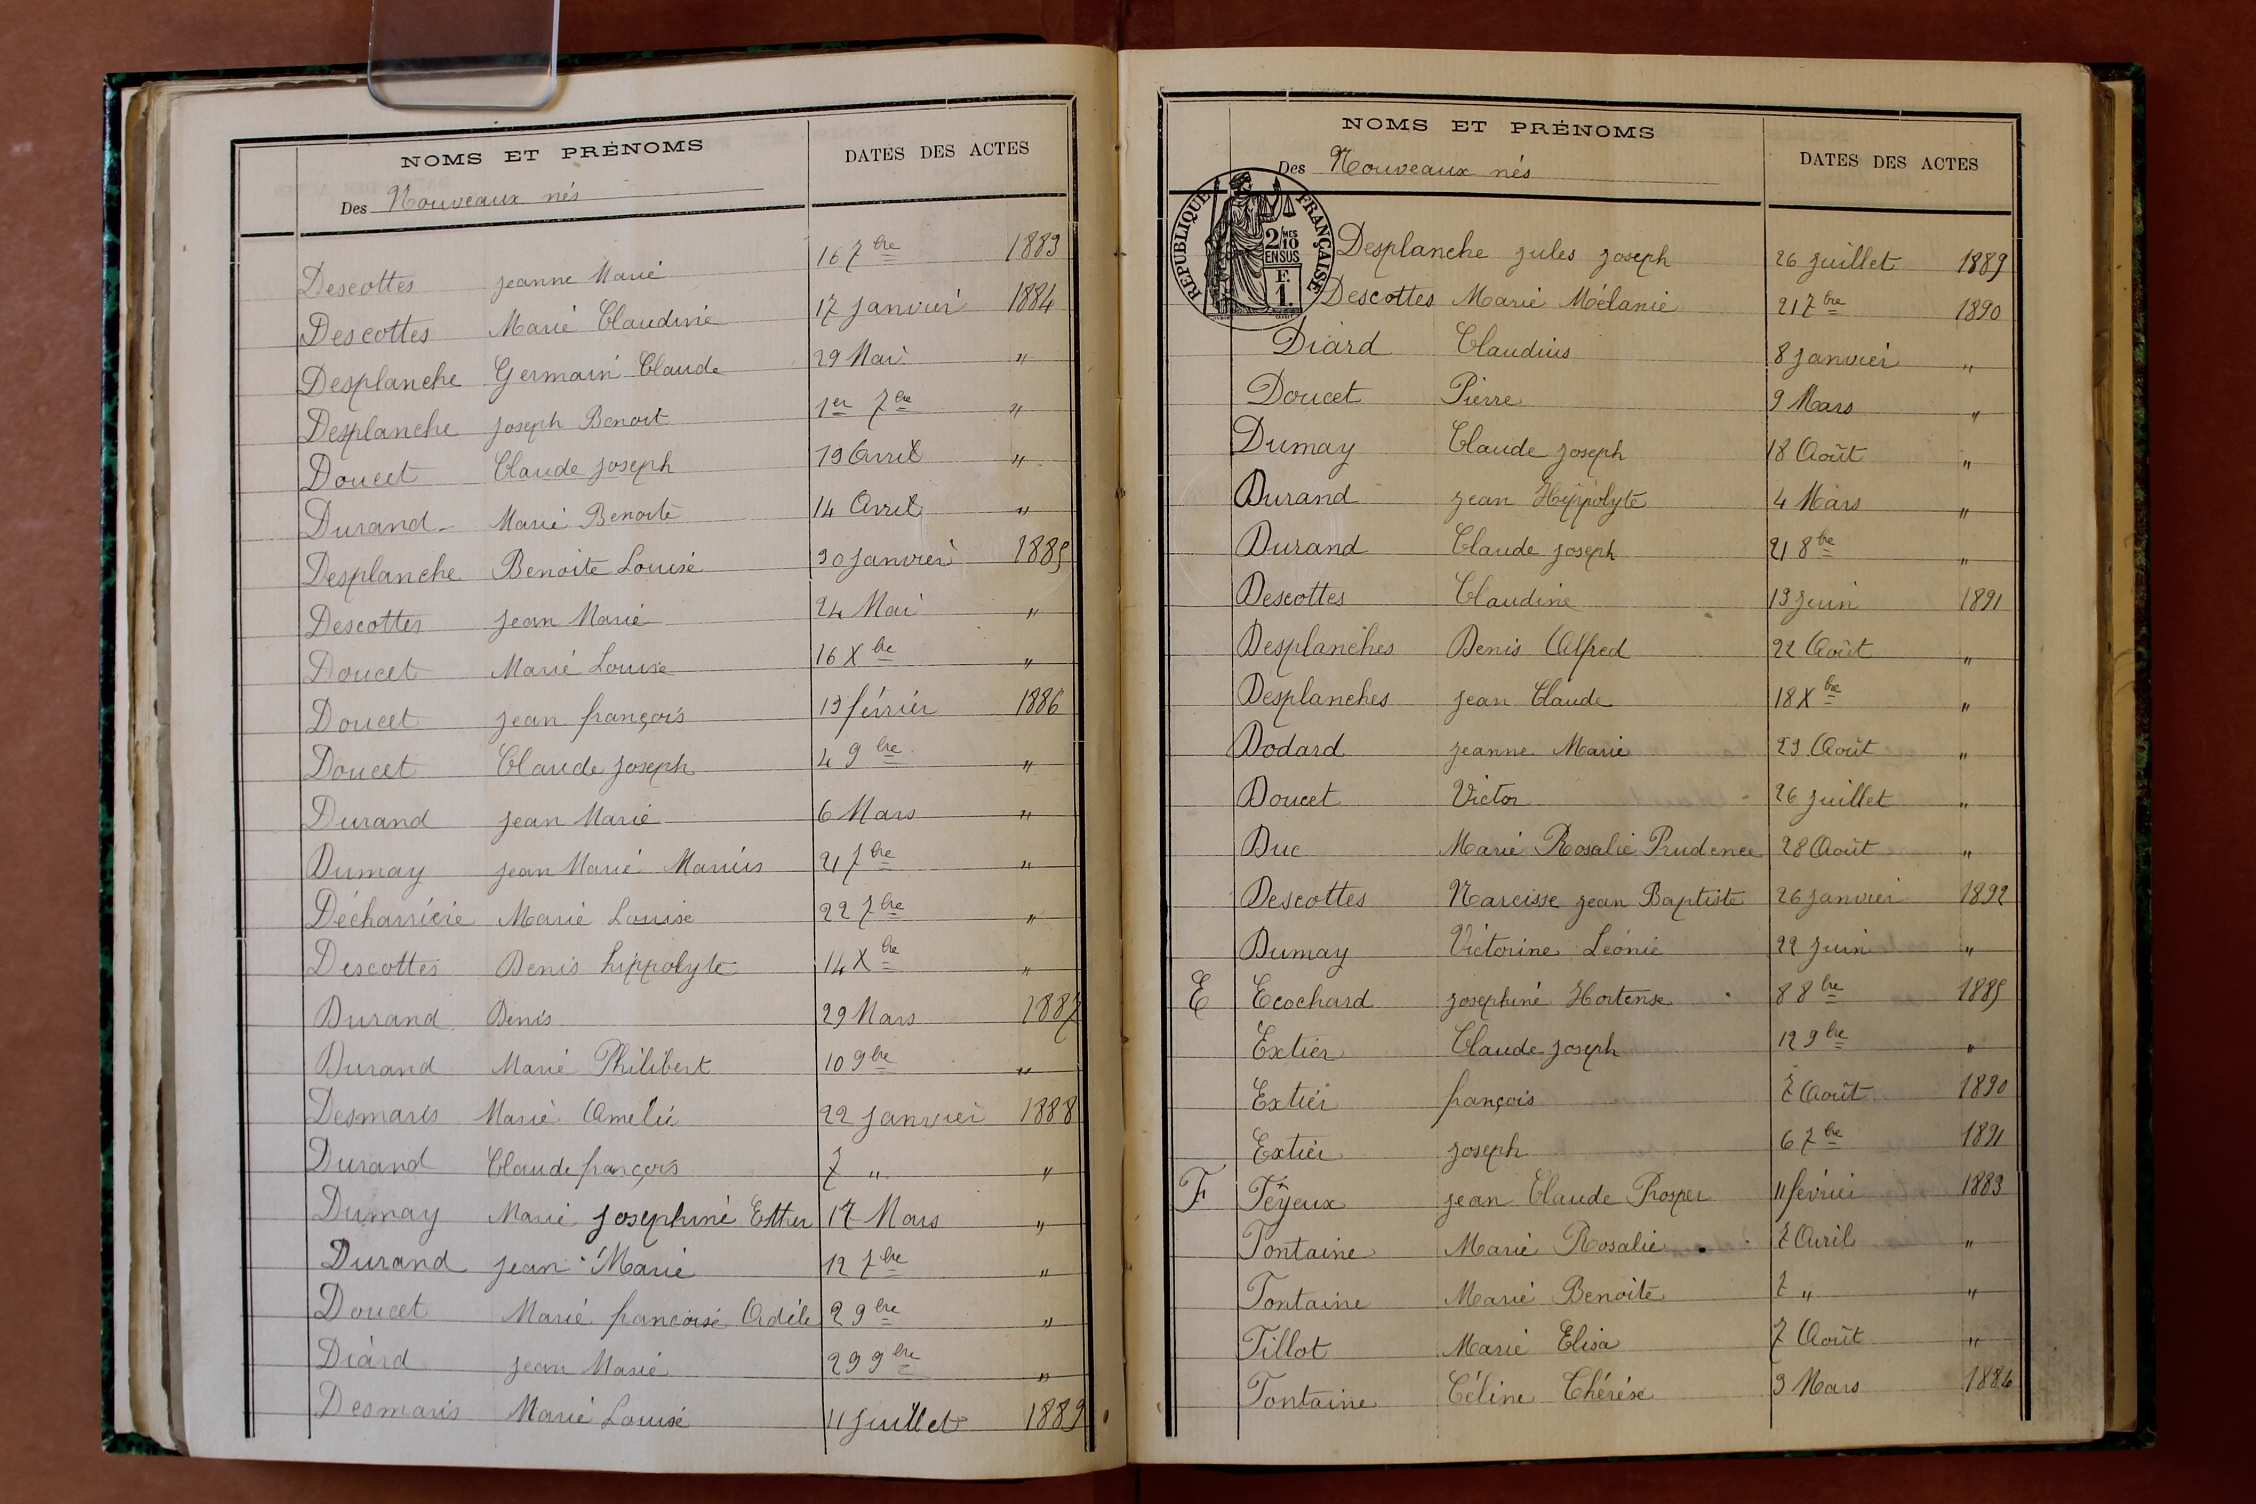 NOMS ET PRÉNOMS
DATES DES ACTES
Des Nouveaux nés
Descottes Jeanne Marie 16 7bre 1883
Descottes Marie Claudine 17 Janvier 1884
Desplanche Germain Claude 29 Mai "
Desplanche Joseph Benoit 1er 7bre "
Doucet Claude Joseph 19 Avril "
Durand Marie Benoite 14 Avril "
Desplanche Benoite Louise 30 Janvier 1885
Descottes Jean Marie 24 Mai "
Doucet Marie Louise 16 Xbre "
Doucet Jean françois 13 février 1886
Doucet Claude Joseph 4 9bre "
Durand Jean Marie 6 Mars "
Dumay Jean Marie Marius 21 7bre "
Décharrière Marie Louise 22 7bre "
Descottes Denis hippolyte 14 Xbre "
Durand Denis 29 Mars 1887
Durand Marie Philibert 10 9bre "
Desmaris Marie Amelie 22 Janvier 1888
Durand Claude françois 7 " "
Dumay Marie Josephine Esther 17 Mars "
Durand Jean Marie 12 7bre "
Doucet Marie françoise Adèle 2 9bre "
Diard Jean Marie 29 9bre "
Desmaris Marie Louise 11 Juillet 1889
NOMS ET PRÉNOMS
DATES DES ACTES
Des Nouveaux nés
RÉPUBLIQUE FRANÇAISE
2/10 MES
EN SUS
F.
1.
Desplanche Jules Joseph 26 Juillet 1889
Descottes Marie Mélanie 21 7bre 1890
Diard Claudius 8 Janvier "
Doucet Pierre 9 Mars "
Dumay Claude Joseph 18 Août "
Durand Jean Hyppolyte 4 Mars "
Durand Claude Joseph 21 8bre "
Descottes Claudine 13 Juin 1891
Desplanches Denis Alfred 22 Août "
Desplanches Jean Claude 18 Xbre "
Dodard Jeanne Marie 23 Août "
Doucet Victor 26 Juillet "
Duc Marie Rosalie Prudence 28 Août "
Descottes Narcisse Jean Baptiste 26 Janvier 1892
Dumay Victorine Léonie 22 Juin "
E Ecochard Josephine Hortense 8 8bre 1885
Extier Claude Joseph 12 9bre "
Extier françois 7 Août 1890
Extier Joseph 6 7bre 1891
F Féyeux Jean Claude Prosper 11 février 1883
Fontaine Marie Rosalie 7 Avril "
Fontaine Marie Benoite 7 " "
Fillot Marie Elisa 7 Août "
Fontaine Céline Thérèse 3 Mars 1884